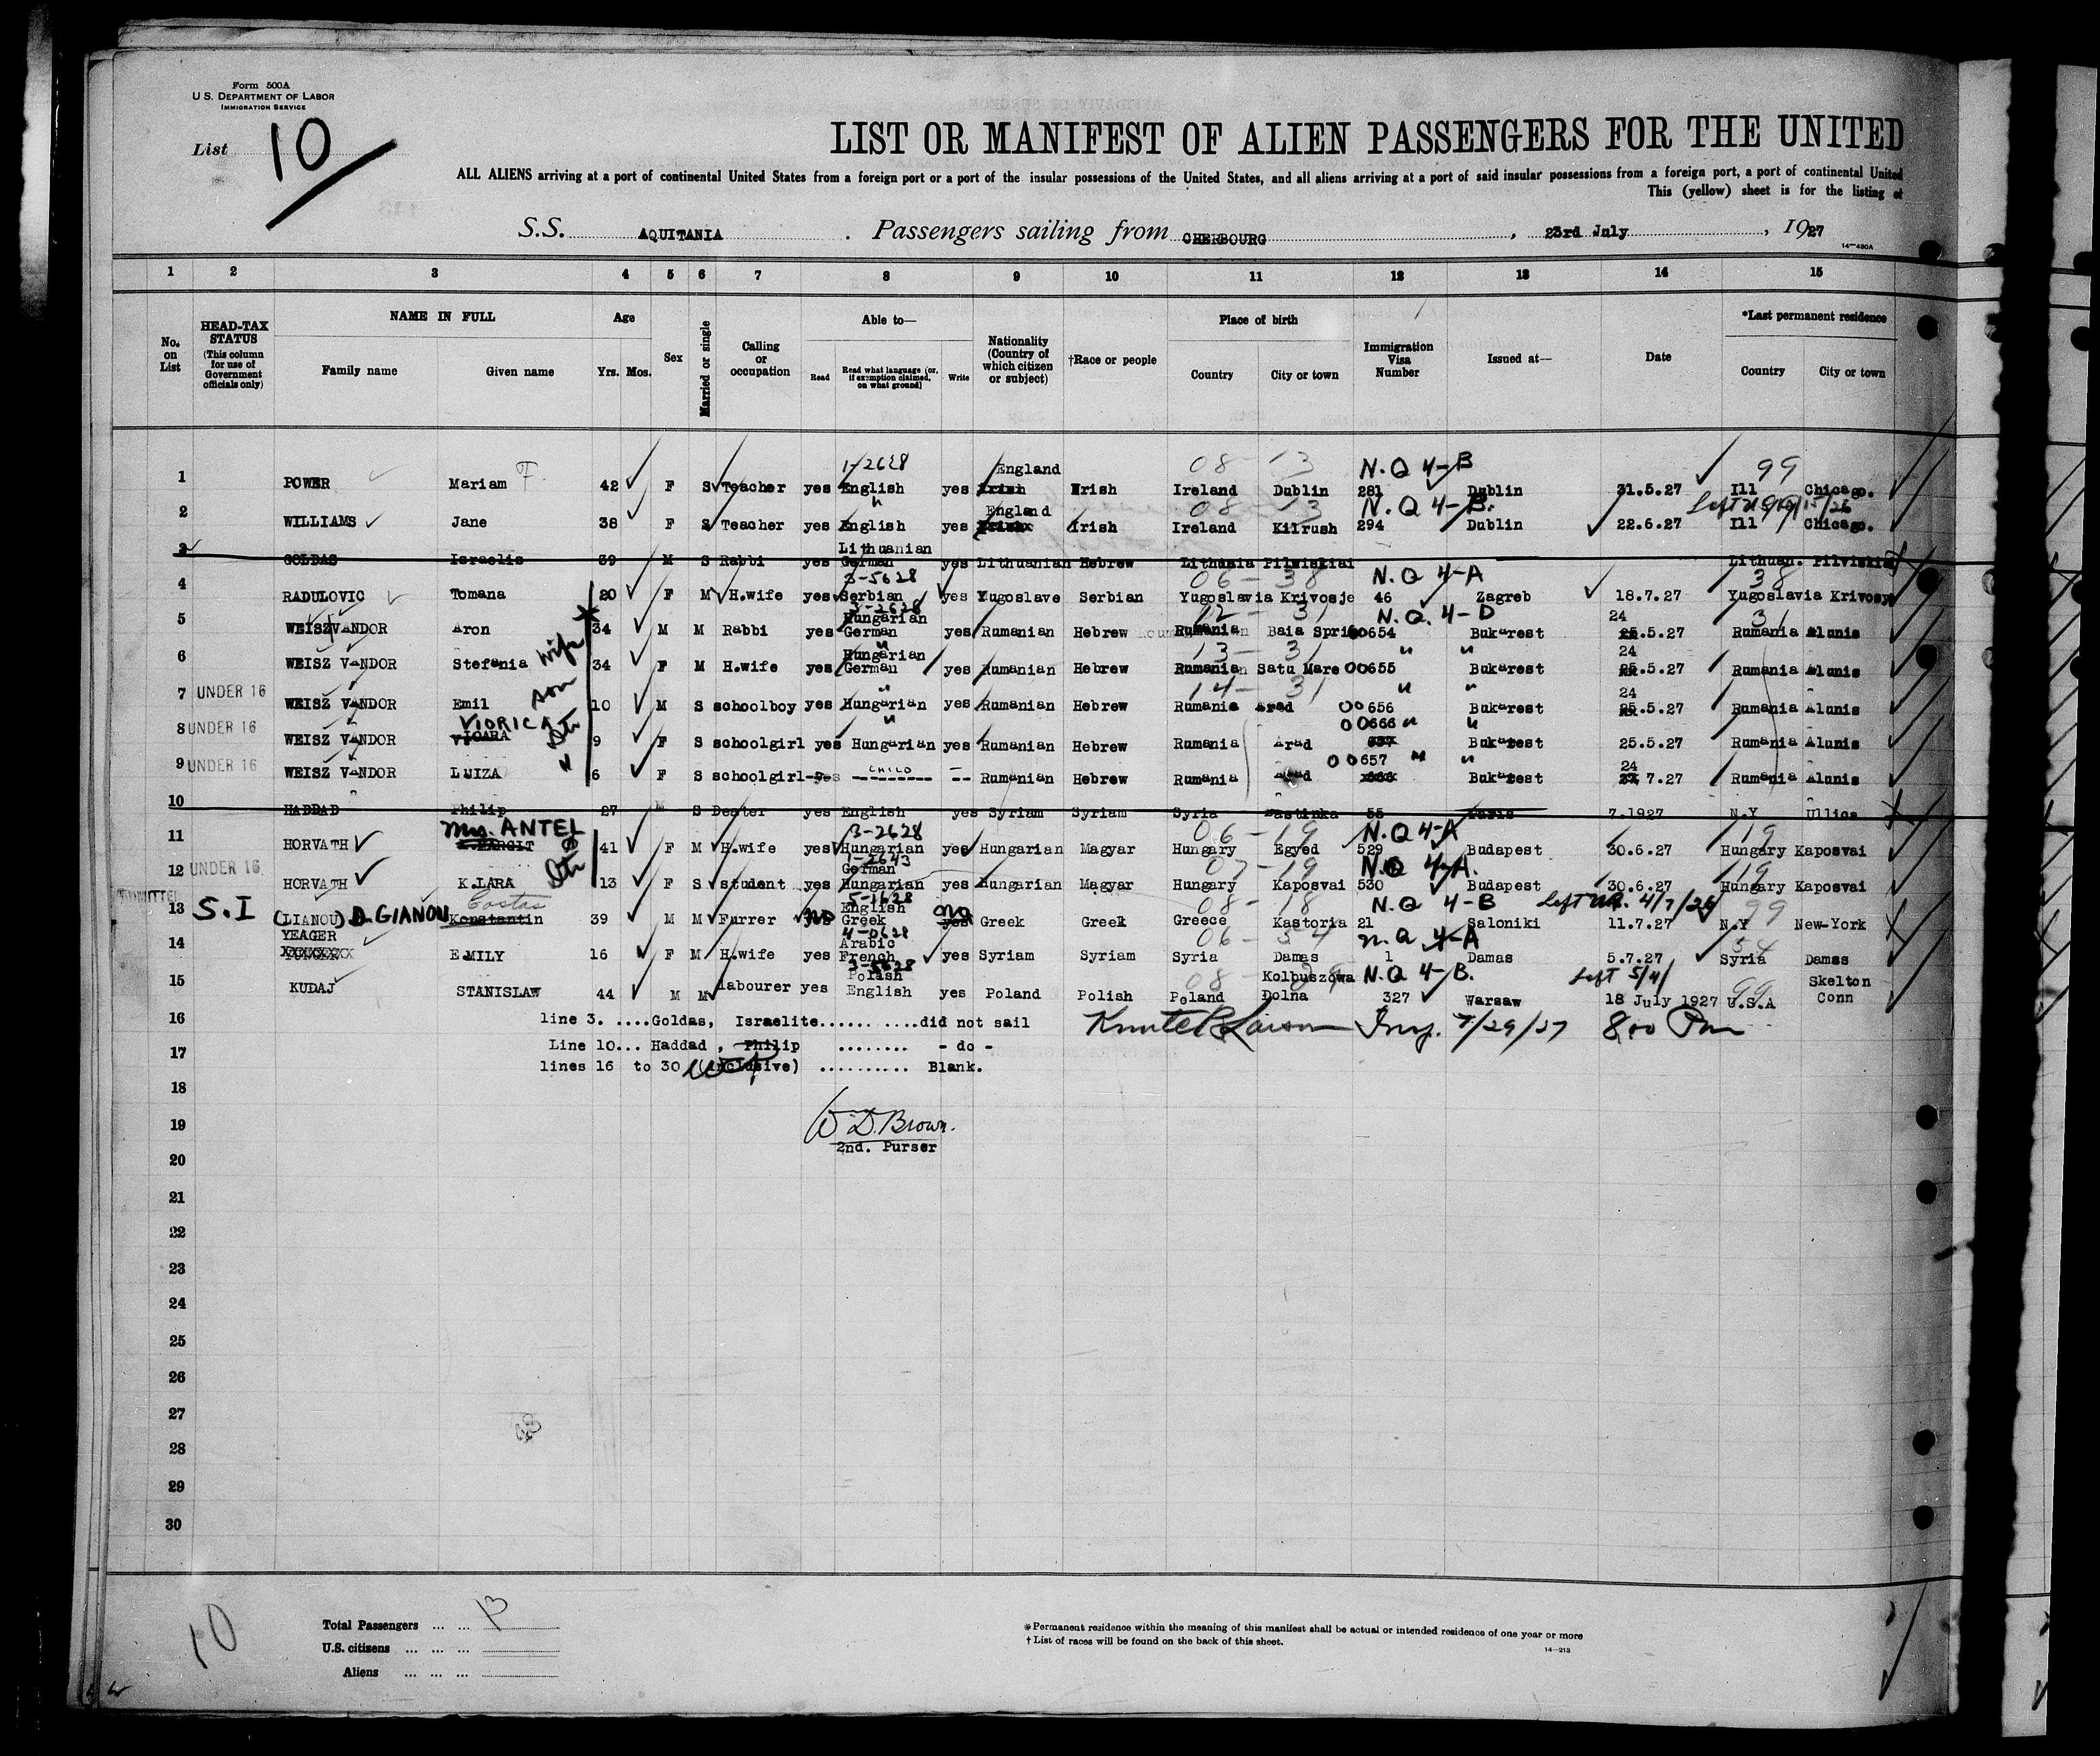 Form 500A
U. S. DEPARTMENT OF LABOR
IMMIGRATION SERVICE
List 10
LIST OR MANIFEST OF ALIEN PASSENGERS FOR THE UNITED
ALL ALIENS arriving at a port of continental United States from a foreign port or a port of the insular possessions of the United States, and all aliens arriving at a port of said insular possessions from a foreign port, a port of continental United
This (yellow) sheet is for the listing of
S.S. AQUITANIA . Passengers sailing from CHERBOURG , 23rd July , 1927
14—480A
1 2 3 4 5 6 7 8 9 10 11 12 13 14 15
No. on List
HEAD-TAX STATUS (This column for use of Government officials only)
NAME IN FULL
Family name Given name
Age
Yrs. Mos.
Sex
Married or single
Calling or occupation
Able to—
Read Read what language (or, if exemption claimed, on what ground) Write
Nationality (Country of which citizen or subject)
†Race or people
Place of birth
Country City or town
Immigration Visa Number
Issued at—
Date
*Last permanent residence
Country City or town
1-2628 England 08 - 13 N.Q 4-B 99
1 POWER Mariam F. 42 F S Teacher yes English yes Irish Irish Ireland Dublin 281 Dublin 31.5.27 Ill Chicago.
" England 08 - 13 N.Q 4-B.
2 WILLIAMS Jane 38 F S Teacher yes English yes Irish Ireland Kilrush 294 Dublin 22.6.27 Ill Chicago.
Lithuanian
3 GOLDAS Israelis 39 M S Rabbi yes German yes Lithuanian Hebrew Lithunia Pilviskiai Lithuan. Pilviskiai
3-5628 06 - 38 N.Q 4-A 38
4 RADULOVIC Tomana 20 F M H.wife yes Serbian yes Yugoslave Serbian Yugoslavia Krivosje 46 Zagreb 18.7.27 Yugoslavia Krivosye
3-2628 Hungarian 12 - 31 N.Q. 4-D 24 31
5 WEISZVANDOR Aron 34 M M Rabbi yes German yes Rumanian Hebrew Rumania Baia Sprie 00654 Bukarest 25.5.27 Rumania Alunis
wife Hungarian 13 - 31 " " 24
6 WEISZ VANDOR Stefania 34 F M H.wife yes German yes Rumanian Hebrew Rumania Satu Mare 00655 Bukarest 25.5.27 Rumania Alunis
son " 14 - 31 " " 24
7 UNDER 16 WEISZ VANDOR Emil 10 M S schoolboy yes Hungarian yes Rumanian Hebrew Rumania Arad 00656 Bukarest 25.5.27 Rumania Alunis
VIORICA Dtr " 00666 " "
8 UNDER 16 WEISZ VANDOR VIOARA 9 F S schoolgirl yes Hungarian yes Rumanian Hebrew Rumania Arad 657 Bukarest 25.5.27 Rumania Alunis
" CHILD 00657 " " 24
9 UNDER 16 WEISZ VANDOR LUIZA 6 F S schoolgirl yes -------- -- Rumanian Hebrew Rumania Arad Bukarest 7.27 Rumania Alunis
10 HADDAD Philip 27 M S yes English yes Syriam Syriam Syria 55 Paris 7.1927 N.Y
Mrs. ANTEL 3-2628 06 - 19 N.Q 4-A 19
11 HORVATH K.MARGIT 41 F M H.wife yes Hungarian yes Hungarian Magyar Hungary Egyed 529 Budapest 30.6.27 Hungary Kaposvai
Dtr 1-2643 German 07 - 19 N.Q 4-A. 19
12 UNDER 16 HORVATH K.LARA 13 F S student yes Hungarian yes Hungarian Magyar Hungary Kaposvai 530 Budapest 30.6.27 Hungary Kaposvai
Costas 5-1628 English no 08 - 18 N.Q 4-B 99
13 S.I (LIANOU) D. GIANOU Konstantin 39 M M Furrer yes no Greek yes Greek Greek Greece Kastoria 21 Saloniki 11.7.27 N.Y New-York
YEAGER 4-0628 Arabic 06 - 54 N.Q 4-A 54
14 E.MILY 16 F M H.wife yes French yes Syriam Syriam Syria Damas 1 Damas 5.7.27 Syria Damas
3-5628 Polish 08 Kolbuszowa N.Q 4-B. Left 5/4/ 99 Skelton
15 KUDAJ STANISLAW 44 M M labourer yes English yes Poland Polish Poland Dolna 327 Warsaw 18 July 1927 U.S.A Conn
16 line 3. ....Goldas, Israelite...... ....did not sail Insp. 7/29/27 8.00 Pm
17 Line 10... Haddad , Philip ........ - do -
lines 16 to 30 (inclusive) .......... Blank.
18
19 W D. Brown.
2nd. Purser
20
21
22
23
24
25
26
27
28
29
30
10
Total Passengers ... ... 13
U.S. citizens ... ... ...
Aliens ... ... ...
*Permanent residence within the meaning of this manifest shall be actual or intended residence of one year or more
†List of races will be found on the back of this sheet.
14—213